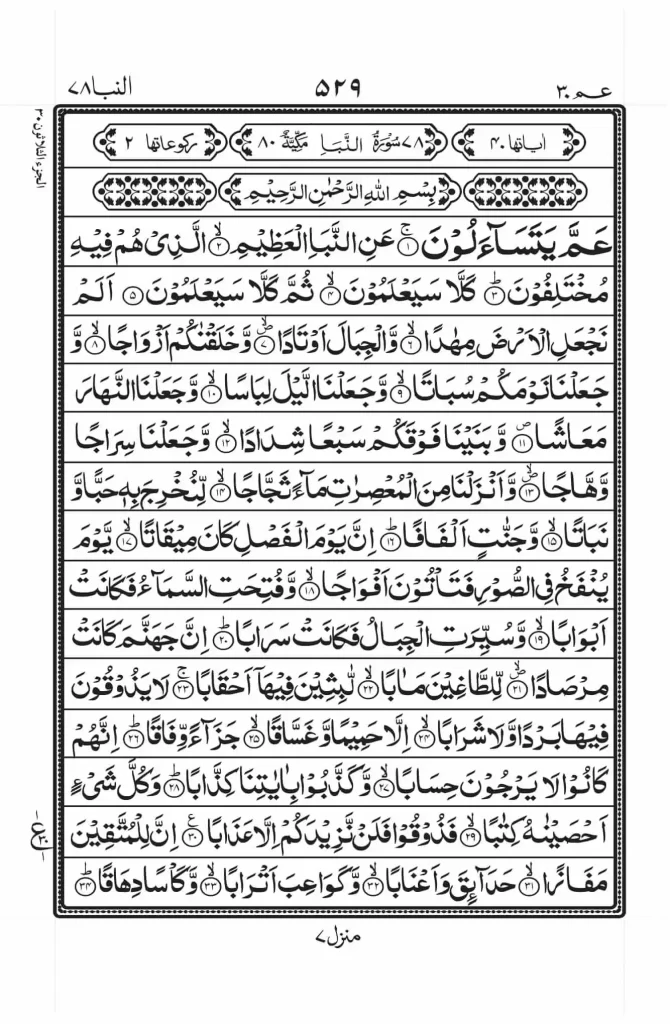 النبا ۷۸
۵۲۹
عـمـ ۳۰
الجزء الثلاثون ۳۰
اٰیاتها ۴۰
۷۸ سُوْرَةُ النَّبَاِ مَكِّيَّةٌ ۸۰
رکوعاتها ۲
بِسْمِ اللّٰهِ الرَّحْمٰنِ الرَّحِيْمِ
عَمَّ يَتَسَآءَلُوْنَ ۚ‏﴿۱﴾ عَنِ النَّبَاِ الْعَظِيْمِ ۙ‏﴿۲﴾ الَّذِىْ هُمْ فِيْهِ
مُخْتَلِفُوْنَ ؕ‏﴿۳﴾ كَلَّا سَيَعْلَمُوْنَ ۙ‏﴿۴﴾ ثُمَّ كَلَّا سَيَعْلَمُوْنَ ﴿۵﴾ اَلَمْ
نَجْعَلِ الْاَرْضَ مِهٰدًا ۙ‏﴿۶﴾ وَّالْجِبَالَ اَوْتَادًا ۪ۙ‏﴿۷﴾ وَّخَلَقْنٰكُمْ اَزْوَاجًا ۙ‏﴿۸﴾ وَّ
جَعَلْنَا نَوْمَكُمْ سُبَاتًا ۙ‏﴿۹﴾ وَّجَعَلْنَا الَّيْلَ لِبَاسًا ۙ‏﴿۱۰﴾ وَّجَعَلْنَا النَّهَارَ
مَعَاشًا ۪‏﴿۱۱﴾ وَّبَنَيْنَا فَوْقَكُمْ سَبْعًا شِدَادًا ۙ‏﴿۱۲﴾ وَّجَعَلْنَا سِرَاجًا
وَّهَّاجًا ۪ۙ‏﴿۱۳﴾ وَّاَنْزَلْنَا مِنَ الْمُعْصِرٰتِ مَآءً ثَجَّاجًا ۙ‏﴿۱۴﴾ لِّنُخْرِجَ بِهٖ حَبًّا وَّ
نَبَاتًا ۙ‏﴿۱۵﴾ وَّجَنّٰتٍ اَلْفَافًا ؕ‏﴿۱۶﴾ اِنَّ يَوْمَ الْفَصْلِ كَانَ مِيْقَاتًا ۙ‏﴿۱۷﴾ يَّوْمَ
يُنْفَخُ فِى الصُّوْرِ فَتَاْتُوْنَ اَفْوَاجًا ۙ‏﴿۱۸﴾ وَّفُتِحَتِ السَّمَآءُ فَكَانَتْ
اَبْوَابًا ۙ‏﴿۱۹﴾ وَّسُيِّرَتِ الْجِبَالُ فَكَانَتْ سَرَابًا ؕ‏﴿۲۰﴾ اِنَّ جَهَنَّمَ كَانَتْ
مِرْصَادًا ۪ۙ‏﴿۲۱﴾ لِّلطَّاغِيْنَ مَاٰبًا ۙ‏﴿۲۲﴾ لّٰبِثِيْنَ فِيْهَاۤ اَحْقَابًا ۚ‏﴿۲۳﴾ لَا يَذُوْقُوْنَ
فِيْهَا بَرْدًا وَّلَا شَرَابًا ۙ‏﴿۲۴﴾ اِلَّا حَمِيْمًا وَّغَسَّاقًا ۙ‏﴿۲۵﴾ جَزَآءً وِّفَاقًا ؕ‏﴿۲۶﴾ اِنَّهُمْ
كَانُوْا لَا يَرْجُوْنَ حِسَابًا ۙ‏﴿۲۷﴾ وَّكَذَّبُوْا بِاٰيٰتِنَا كِذَّابًا ؕ‏﴿۲۸﴾ وَكُلَّ شَىْءٍ
اَحْصَيْنٰهُ كِتٰبًا ۙ‏﴿۲۹﴾ فَذُوْقُوْا فَلَنْ نَّزِيْدَكُمْ اِلَّا عَذَابًا ﴿۳۰﴾ اِنَّ لِلْمُتَّقِيْنَ
مَفَازًا ۙ‏﴿۳۱﴾ حَدَآئِقَ وَاَعْنَابًا ۙ‏﴿۳۲﴾ وَّكَوَاعِبَ اَتْرَابًا ۙ‏﴿۳۳﴾ وَّكَاْسًا دِهَاقًا ؕ‏﴿۳۴﴾
منزل ۷